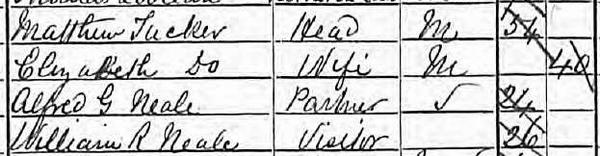 Matthew Tucker Head M 54
Elizabeth Do Wife M 40
Alfred G Neale Partner S 24
William R Neale Visitor 26